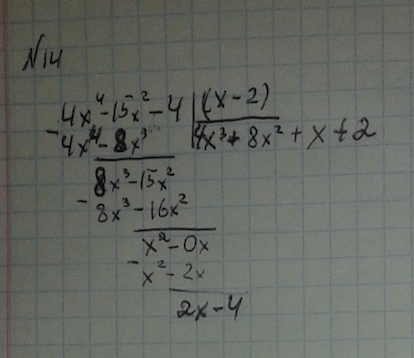 N14
4x⁴-15x²-4 | (x-2)
- 4x⁴-8x³ | 4x³+8x²+x+2
8x³-15x²
- 8x³-16x²
x²-0x
- x²-2x
2x-4